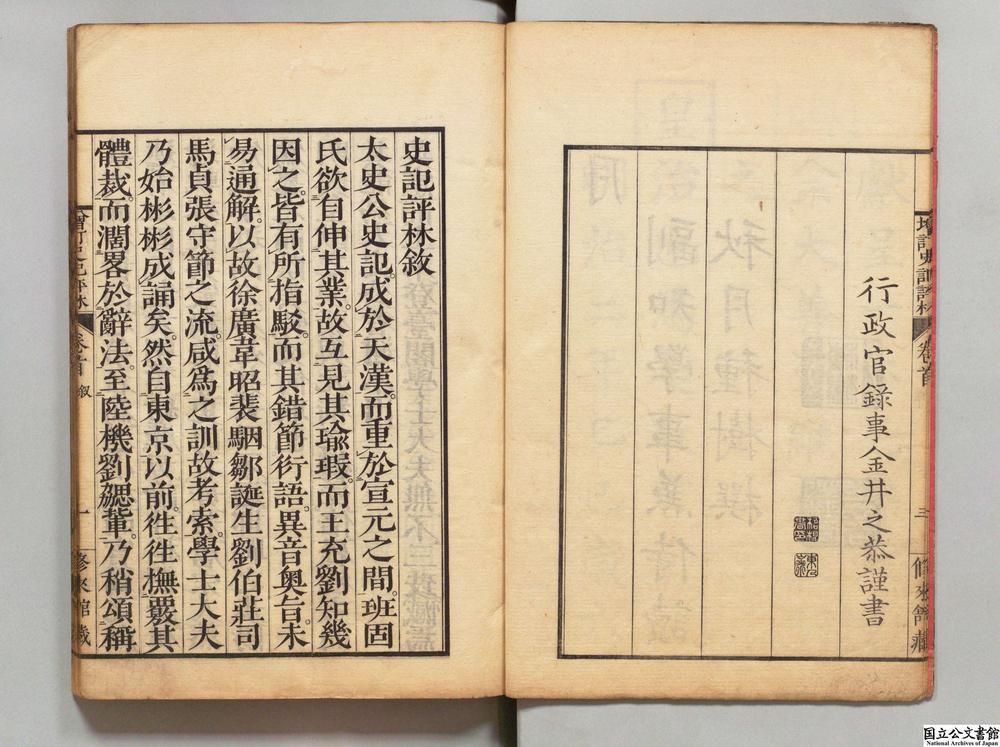 增訂史記評林
卷首
三
修來館藏
行政官錄事金井之恭謹書
史記評林敘
太史公史記。成於天漢。而重於宣元之間。班固
氏欲自伸其業。故互見其瑜瑕。而王充劉知幾
因之。皆有所指駁。而其錯節衍語。異音奧旨。未
易通解。以故徐廣韋昭裴駰鄒誕生劉伯莊司
馬貞張守節之流。咸為之訓故考索。學士大夫
乃始彬彬成誦矣。然自東京以前。徃徃橅覈其
體裁。而濶畧於辭法。至陸機劉勰輩。乃稍頌稱
增訂史記評林
卷首
敘
一
修來館藏
国立公文書館
National Archives of Japan